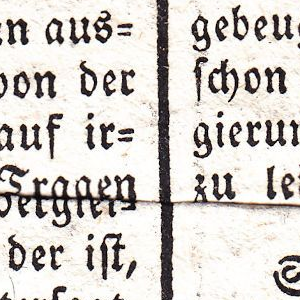 an aus=
von der
auf ir=
der ist,
gebeug
schon
gierun
zu lei